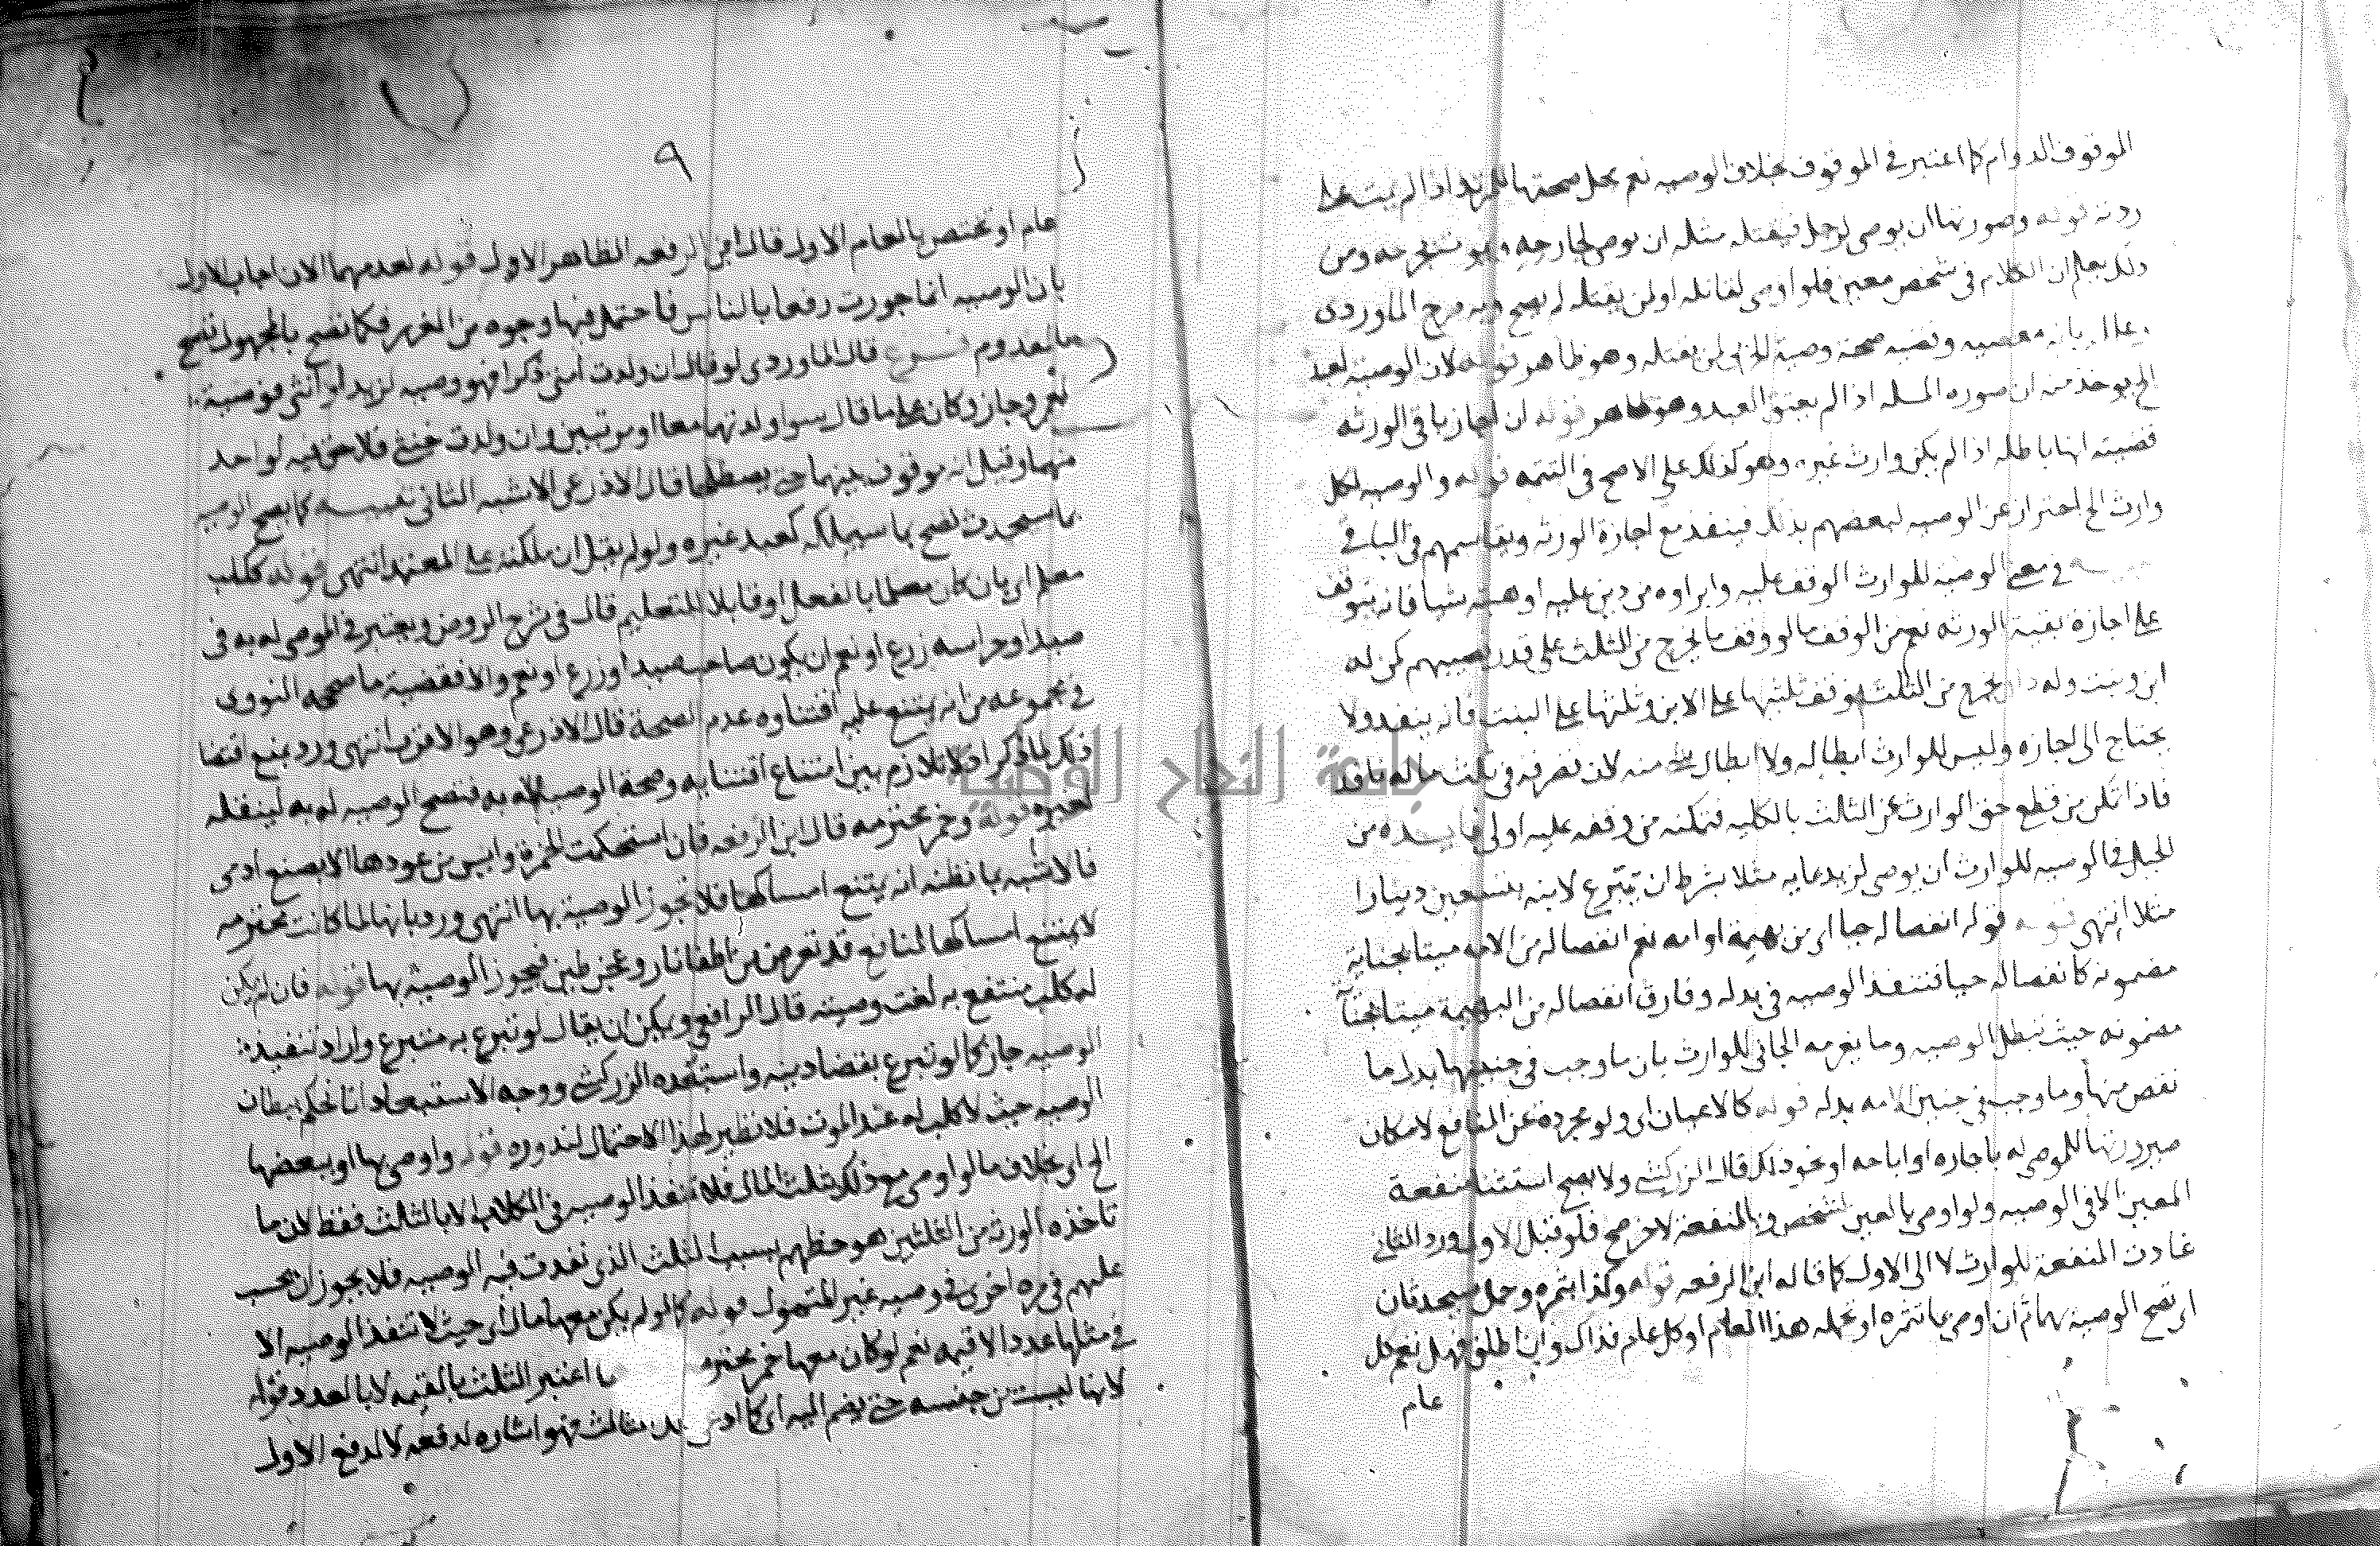 الموقوف الدوام كما اعتبر في الموقوف بخلاف الوصيه نعم محل صحتها للمرتد اذا لم يمت على
ردته قوله وصورتها ان يوصى لرجل فيقتله مثله ان يوصى لجارحه ثم يموت بجرحه ومن
ذلك يعلم ان الكلام في شخص معين فلو اوصى لقاتله او لمن يقتله لم يصح وبه صرح الماوردى
بانه معصيه وقضيته صحة وصية الحربي لمن يقتله وهو ظاهر قوله لان الوصيه لعبد
الخ يوخذ منه ان صوره المسله اذا لم يعتق العبد وهو ظاهر قوله ان اجاز باقى الورثه
قضيته انها باطله اذا لم يكن وارث غيره وهو كذلك على الاصح في التتمه قوله والوصيه لكل
وارث الخ احتراز عن الوصيه لبعضهم بذلك فينفذ مع اجازة الورثه ويقاسمهم في الباقي
في معنى الوصيه للوارث الوقف عليه وابراوه من دين عليه او هبته شيا فانه يتوقف
على اجازة بقية الورثه نعم من الوقف ما لو وقف ما يخرج من الثلث على قدر نصيبهم كمن له
ابن وبنت وله دار تخرج من الثلث فوقف ثلثيها على الابن وثلثها على البنت فانه ينفذ ولا
يحتاج الى اجازه وليس للوارث ابطاله ولا ابطال شي منه لان تصرفه في ثلث ماله نافذ
فاذا تمكن من قطع حق الوارث عن الثالث بالكليه فتمكنه من وقفه عليه اولى فايده من
الحيل في الوصيه للوارث ان يوصى لزيد بمايه مثلا بشرط ان يتبرع لابنه بتسعين دينارا
مثلا انتهى قوله انفصاله حيا اى من بهيمة او امه نعم انفصاله من الامه ميتا بجناية
مضمونه كانفصاله حيا فتنفذ الوصيه في بدله وفارق انفصاله من البهيمة ميتا بجناية
مضمونه حيث تبطل الوصيه وما يغرمه الجاني للوارث بان ما وجب في جنينها بدل ما
نقص منها وما وجب في جنين الامه بدله قوله كالاعيان اى ولو مجردة عن المنافع لامكان
صيرورتها للموصى له باجاره او اباحه او نحو ذلك قال الزركشي ولا يصح استثنا منفعة
المعين الا في الوصيه ولو اوصى بالعين لشخص وبالمنفعة لاخر صح فلو قبل الاول ورد الثاني
عادت المنفعة للوارث لا الى الاول كما قاله ابن الرفعه قوله وكذا بثمره وحمل سيحدثان
اى تصح الوصية بهما ثم ان اوصى بما تثمره او تحمله هذا العام او كل عام فذاك وان اطلق فهل تعم كل
عام
٩
عام او تختص بالعام الاول قال ابن الرفعه الظاهر الاول قوله لعدمهما الان اجاب الاول
بان الوصيه انما جوزت رفعا بالناس فاحتمل فيها وجوه من الغرر فكما تصح بالمجهول تصح
بالمعدوم فرع قال الماوردى لو قال ان ولدت امتي ذكرا فهو وصيه لزيد او انثى فوصية
لعمرو جاز وكان على ما قال سوا ولدتهما معا او مرتبين وان ولدت خنثى فلا حق فيه لواحد
منهما وقيل انه موقوف بينهما حتى يصطلحا قال الاذرعى الاشبه الثاني تنبيه كما تصح الوصيه
بما سيحدث تصح بما سيملكه كعبد غيره ولو لم يقل ان ملكته على المعتمد انتهى قوله ككلب
معلم اى بان كان معلما بالفعل او قابلا للتعليم قال في شرح الروض ويعتبر في الموصى له به في
صيد او حراسه زرع او نعم ان يكون صاحب صيد او زرع او نعم والا فقضية ما صححه النووى
في مجموعه من انه يمتنع عليه اقتناوه عدم الصحة قال الاذرعى وهو الاقرب انتهى ورد بمنع اقتضا
ذلك لما ذكر اذ لا تلازم بين امتناع اقتنايه وصحة الوصيه له به فتصح الوصيه له به لينقله
لغيره قوله وخمر محترمه قال ابن الرفعه فان استحكمت الخمرة وايس من عودها الا بصنع ادمى
فالاشبه بما نظنه انه يمتنع امساكها فلا تجوز الوصية بها انتهى ورد بانها لما كانت محترمه
لا يمتنع امساكها لمنافع قد تعرض من اطفا نار وعجن طين فيجوز الوصية بها قوله فان لم يكن
له كلب منتفع به لغت وصيته قال الرافعي ويمكن ان يقال لو تبرع به متبرع واراد تنفيذ
الوصيه جاز كما لو تبرع بقضا دينه واستبعده الزركشي ووجه الاستبعاد انا نحكم ببطلان
الوصيه حيث لا كلب له عند الموت فلا نظير لهذا الاحتمال لندوره قوله واوصى بها او ببعضها
الخ اى بخلاف ما لو اوصى مع ذلك بثلث المال فلا تنفذ الوصيه في الكلاب الا بالثالث فقط لان ما
تاخذه الورثه من الثلثين هو حظهم بسبب الثلث الذى نفذت فيه الوصيه فلا يجوز ان يحسب
عليهم في مره اخرى في وصيه غير المتمول قوله كما لو لم يكن معها مال اى حيث لا تنفذ الوصيه الا
في مثلها عددا لا قيمه نعم لو كان معها خمر محترم ما اعتبر الثلث بالقيمه لا بالعدد قوله
لانها ليست من جنسه حتى يضم اليه اى كما ادعى ثالث فهو اشاره لدفعه لا لدفع الاول
جامعة النجاح الوطنية